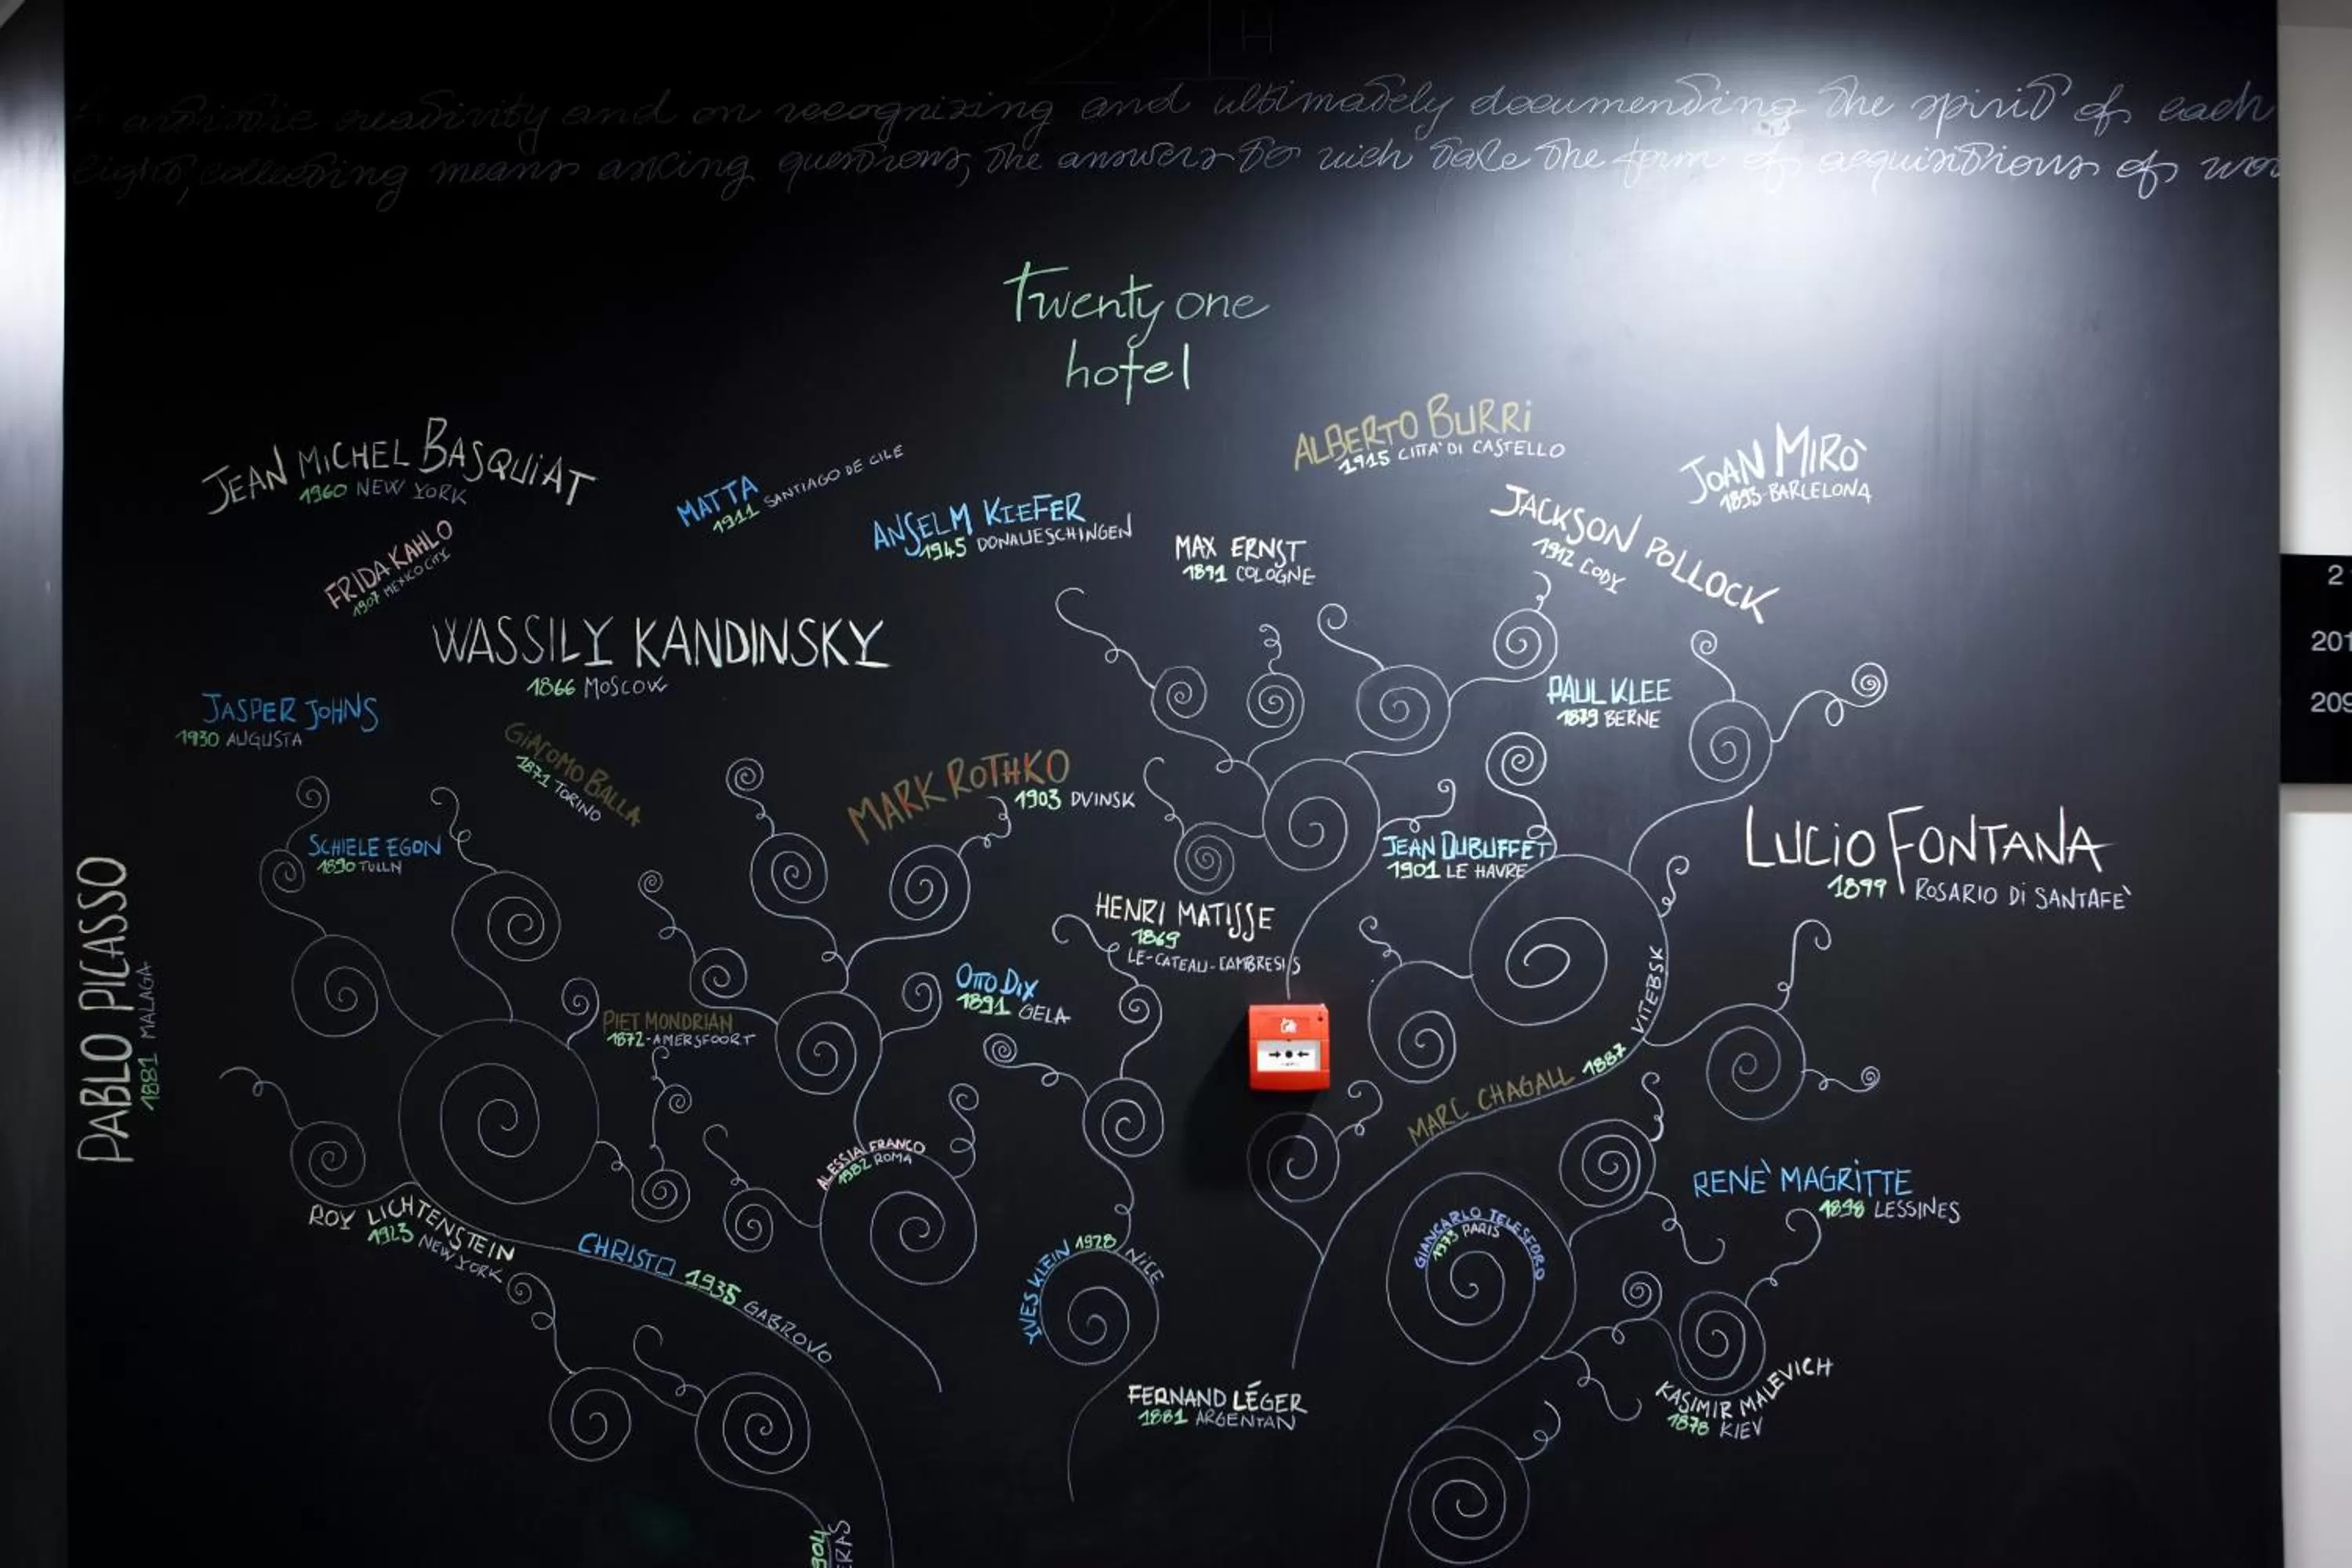 21 H
artistic creativity and on recognizing and ultimately documending the spirit of each
eight, collecting means asking questions, the answers to wich take the form of acquisitions of wor
Twenty one
hotel
ALBERTO BURRI
1915 CITTA' DI CASTELLO
JEAN MICHEL BASQUIAT
1960 NEW YORK
MATTA
1911 SANTIAGO DE CILE
JOAN MIRO'
1893 BARCELONA
ANSELM KIEFER
1945 DONAUESCHINGEN
JACKSON POLLOCK
1912 CODY
FRIDA KAHLO
1907 MEXICO CITY
MAX ERNST
1891 COLOGNE
WASSILY KANDINSKY
1866 MOSCOW
2
201
209
PAUL KLEE
1879 BERNE
JASPER JOHNS
1930 AUGUSTA
GIACOMO BALLA
1871 TORINO
MARK ROTHKO
1903 DVINSK
SCHIELE EGON
1890 TULLN
JEAN DUBUFFET
1901 LE HAVRE
LUCIO FONTANA
1899 ROSARIO DI SANTAFE'
PABLO PICASSO
1881 MALAGA
HENRI MATISSE
1869
LE-CATEAU-CAMBRESIS
OTTO DIX
1891 GELA
PIET MONDRIAN
1872-AMERSFOORT
MARC CHAGALL 1887 VITEBSK
ALESSIA FRANCO
1982 ROMA
RENE' MAGRITTE
1898 LESSINES
ROY LICHTENSTEIN
1923 NEW YORK
CHRISTO 1935 GABROVO
YVES KLEIN 1928 NICE
GIANCARLO TELESFORO
1973 PARIS
FERNAND LÉGER
1881 ARGENTAN
KASIMIR MALEVICH
1878 KIEV
904
ERAS